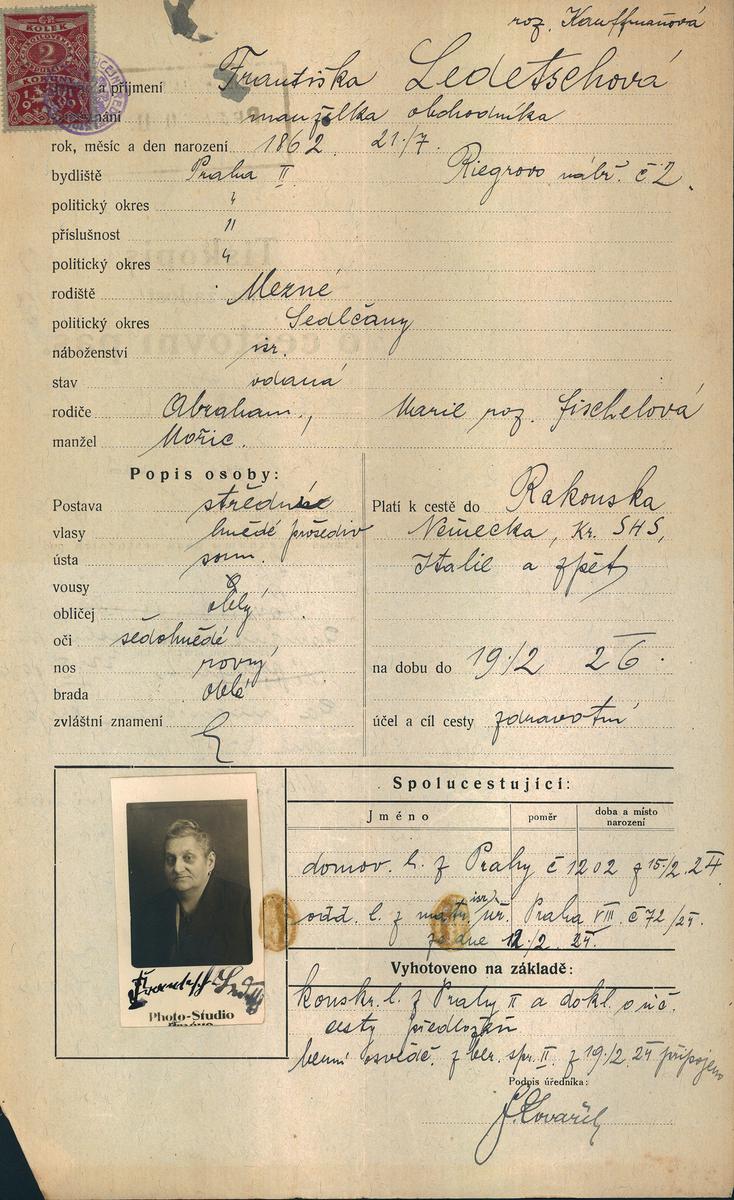 roz. Kauffmanová
KOLEK
2
a příjmení Františka Ledetschová
manželka obchodníka
rok, měsíc a den narození 1862 21./7.
bydliště Praha II Riegrovo nábř. č 2.
politický okres "
příslušnost "
politický okres "
rodiště Mezné
politický okres Sedlčany
náboženství isr.
stav vdaná
rodiče Abraham, Marie roz. Fischelová
manžel Mořic.
Popis osoby:
Postava střední
vlasy hnědé prošediv
ústa soum.
vousy
obličej oblý
oči šedohnědé
nos rovný
brada oblá
zvláštní znamení
Platí k cestě do Rakouska
Německa, Kr. SHS,
Italie a zpět
na dobu do 19./2 26.
účel a cíl cesty zdravotní
Spolucestující:
Jméno poměr doba a místo narození
domov. l. z Prahy č 1202 z 15/2. 24
odd. l. z matr. isr. Praha VIII. č 72/24.
ze dne 12./2. 24.
Vyhotoveno na základě:
konskr. l. z Prahy II a dokl. o úč.
cesty předložen
berní osvědč. z ber. spr. II. z 19./2. 24 připojeno
Podpis úředníka:
Photo-Studio